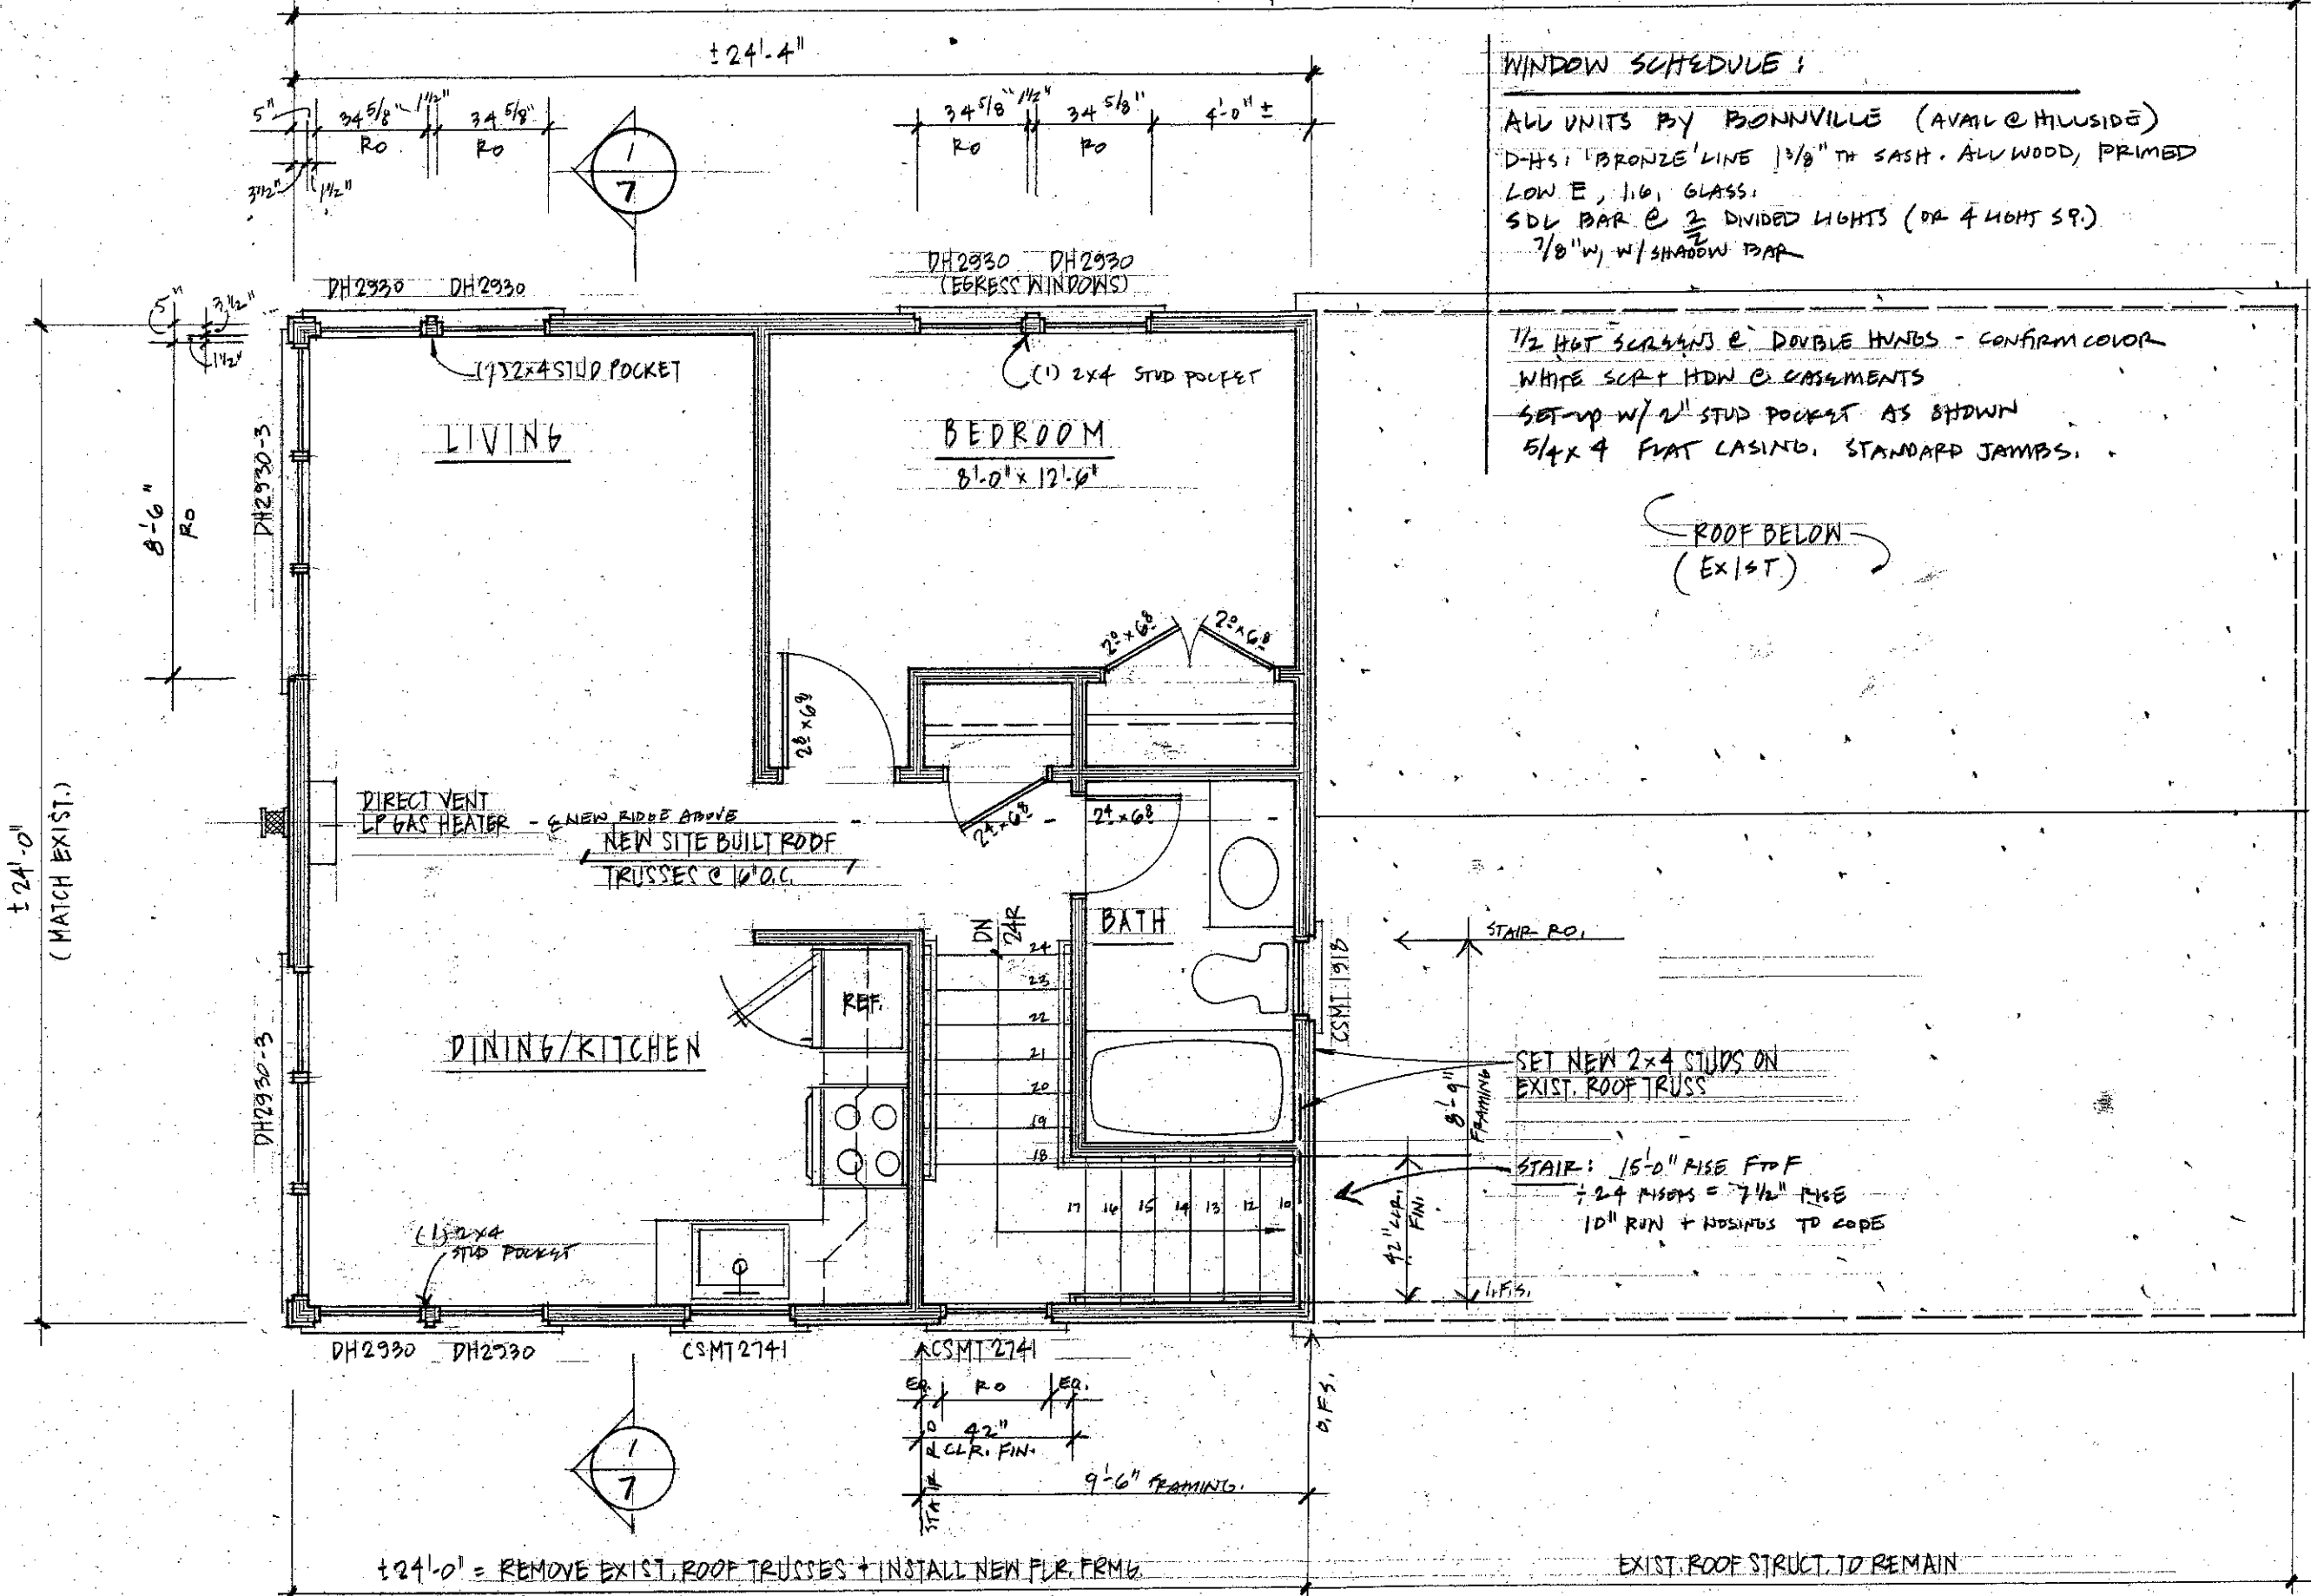 ±24'-4"
5"
34 5/8"
1½"
34 5/8"
RO
RO
3½"
1½"
1
7
34 5/8"
1½"
34 5/8"
4'-0" ±
RO
RO
WINDOW SCHEDULE:
ALL UNITS BY BONNVILLE (AVAIL @ HILLSIDE)
D-HS: 'BRONZE' LINE 1 3/8" TH SASH. ALL WOOD, PRIMED
LOW E, I.G. GLASS.
SDL BAR @ 2/2 DIVIDED LIGHTS (OR 4 LIGHT SQ.)
7/8" W, W/ SHADOW BAR
½ HGT SCREENS @ DOUBLE HUNGS - CONFIRM COLOR
WHITE SCR + HDW @ CASEMENTS
SET-UP W/ 2" STUD POCKET AS SHOWN
5/4 x 4 FLAT CASING. STANDARD JAMBS.
DH2930 DH2930
DH2930 DH2930
(EGRESS WINDOWS)
5"
3½"
1½"
(1) 2x4 STUD POCKET
(1) 2x4 STUD POCKET
LIVING
BEDROOM
8'-0" x 12'-6"
DH2930-3
8'-6"
RO
ROOF BELOW
(EXIST.)
2⁰x6⁸
2⁰x6⁸
2⁸x6⁸
±24'-0"
(MATCH EXIST.)
DIRECT VENT
LP GAS HEATER
℄ NEW RIDGE ABOVE
NEW SITE BUILT ROOF
TRUSSES @ 16" O.C.
2⁴x6⁸
2⁴x6⁸
DN
24R
BATH
STAIR RO.
CSMT 1918
REF.
24
23
22
21
20
19
18
DINING/KITCHEN
DH2930-3
SET NEW 2x4 STUDS ON
EXIST. ROOF TRUSS
8'-9"
FRAMING
STAIR: 15'-0" RISE F TO F
÷ 24 RISERS = 7½" RISE
10" RUN + NOSINGS TO CODE
42" CLR.
FIN.
17 16 15 14 13 12 10
I.F.S.
(1) 2x4
STUD POCKET
DH2930 DH2930
CSMT2741
CSMT2741
EQ. RO EQ.
42"
CLR. FIN.
STAIR RO
O.F.S.
9'-6" FRAMING.
1
7
±24'-0" = REMOVE EXIST. ROOF TRUSSES + INSTALL NEW FLR. FRMG.
EXIST. ROOF STRUCT. TO REMAIN